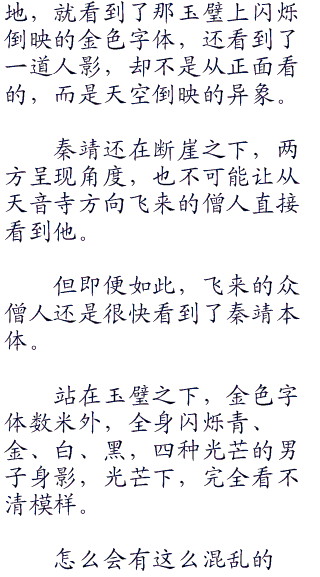 地，就看到了那玉璧上闪烁
倒映的金色字体，还看到了
一道人影，却不是从正面看
的，而是天空倒映的异象。
秦靖还在断崖之下，两
方呈现角度，也不可能让从
天音寺方向飞来的僧人直接
看到他。
但即便如此，飞来的众
僧人还是很快看到了秦靖本
体。
站在玉璧之下，金色字
体数米外，全身闪烁青、
金、白、黑，四种光芒的男
子身影，光芒下，完全看不
清模样。
怎么会有这么混乱的